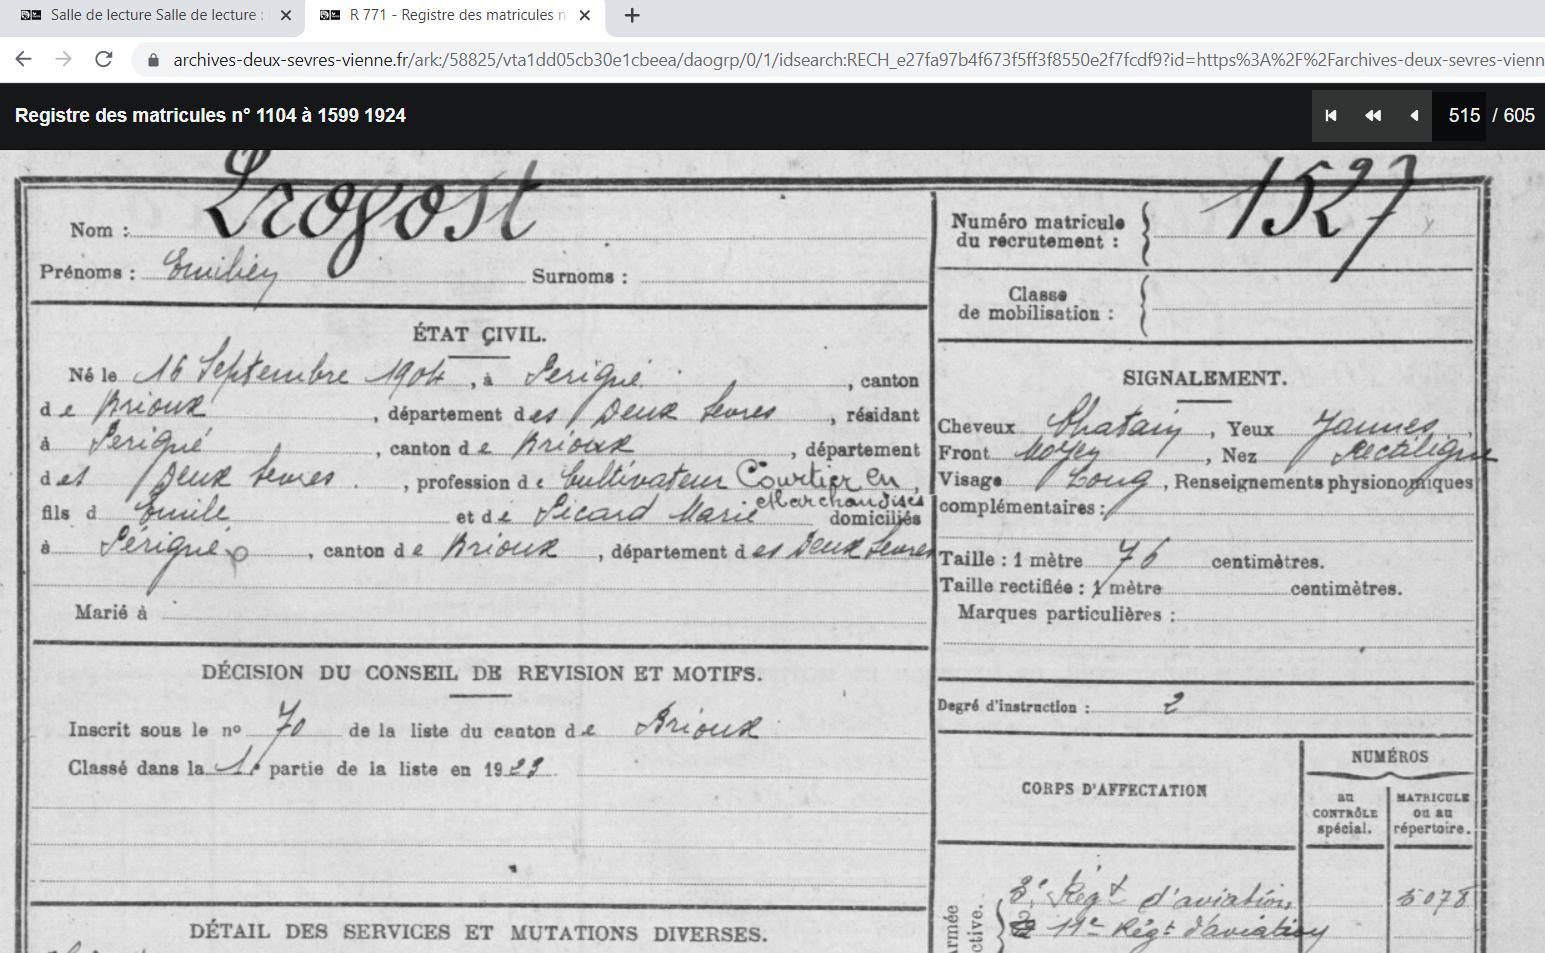 Salle de lecture Salle de lecture :
R 771 - Registre des matricules n
archives-deux-sevres-vienne.fr/ark:/58825/vta1dd05cb30e1cbeea/daogrp/0/1/idsearch:RECH_e27fa97b4f673f5ff3f8550e2f7fcdf9?id=https%3A%2F%2Farchives-deux-sevres-vienn
Registre des matricules n° 1104 à 1599 1924
515 / 605
Nom :
Prénoms : Emilien Surnoms :
Numéro matricule du recrutement : 1527
Classe de mobilisation :
ÉTAT CIVIL.
Né le 16 Septembre 1904, à Périgné, canton
de Brioux, département des Deux Sevres, résidant
à Périgné, canton de Brioux, département
des Deux Sevres, profession de Cultivateur Courtier en Marchandises,
fils d Emile et de Picard Marie domiciliés
à Périgné, canton de Brioux, département des Deux Sevres
Marié à
SIGNALEMENT.
Cheveux Chatain, Yeux Jaunes
Front Moyen, Nez Rectiligne
Visage Long, Renseignements physionomiques
complémentaires :
Taille : 1 mètre 76 centimètres.
Taille rectifiée : 1 mètre centimètres.
Marques particulières :
DÉCISION DU CONSEIL DE REVISION ET MOTIFS.
Inscrit sous le n° 70 de la liste du canton de Brioux
Classé dans la 1e partie de la liste en 19
Degré d'instruction : 2
CORPS D'AFFECTATION
NUMÉROS
au CONTRÔLE spécial.
MATRICULE ou au répertoire.
DÉTAIL DES SERVICES ET MUTATIONS DIVERSES.
Armée
active.
3e Régt d'aviation 5078
11e Régt d'aviation